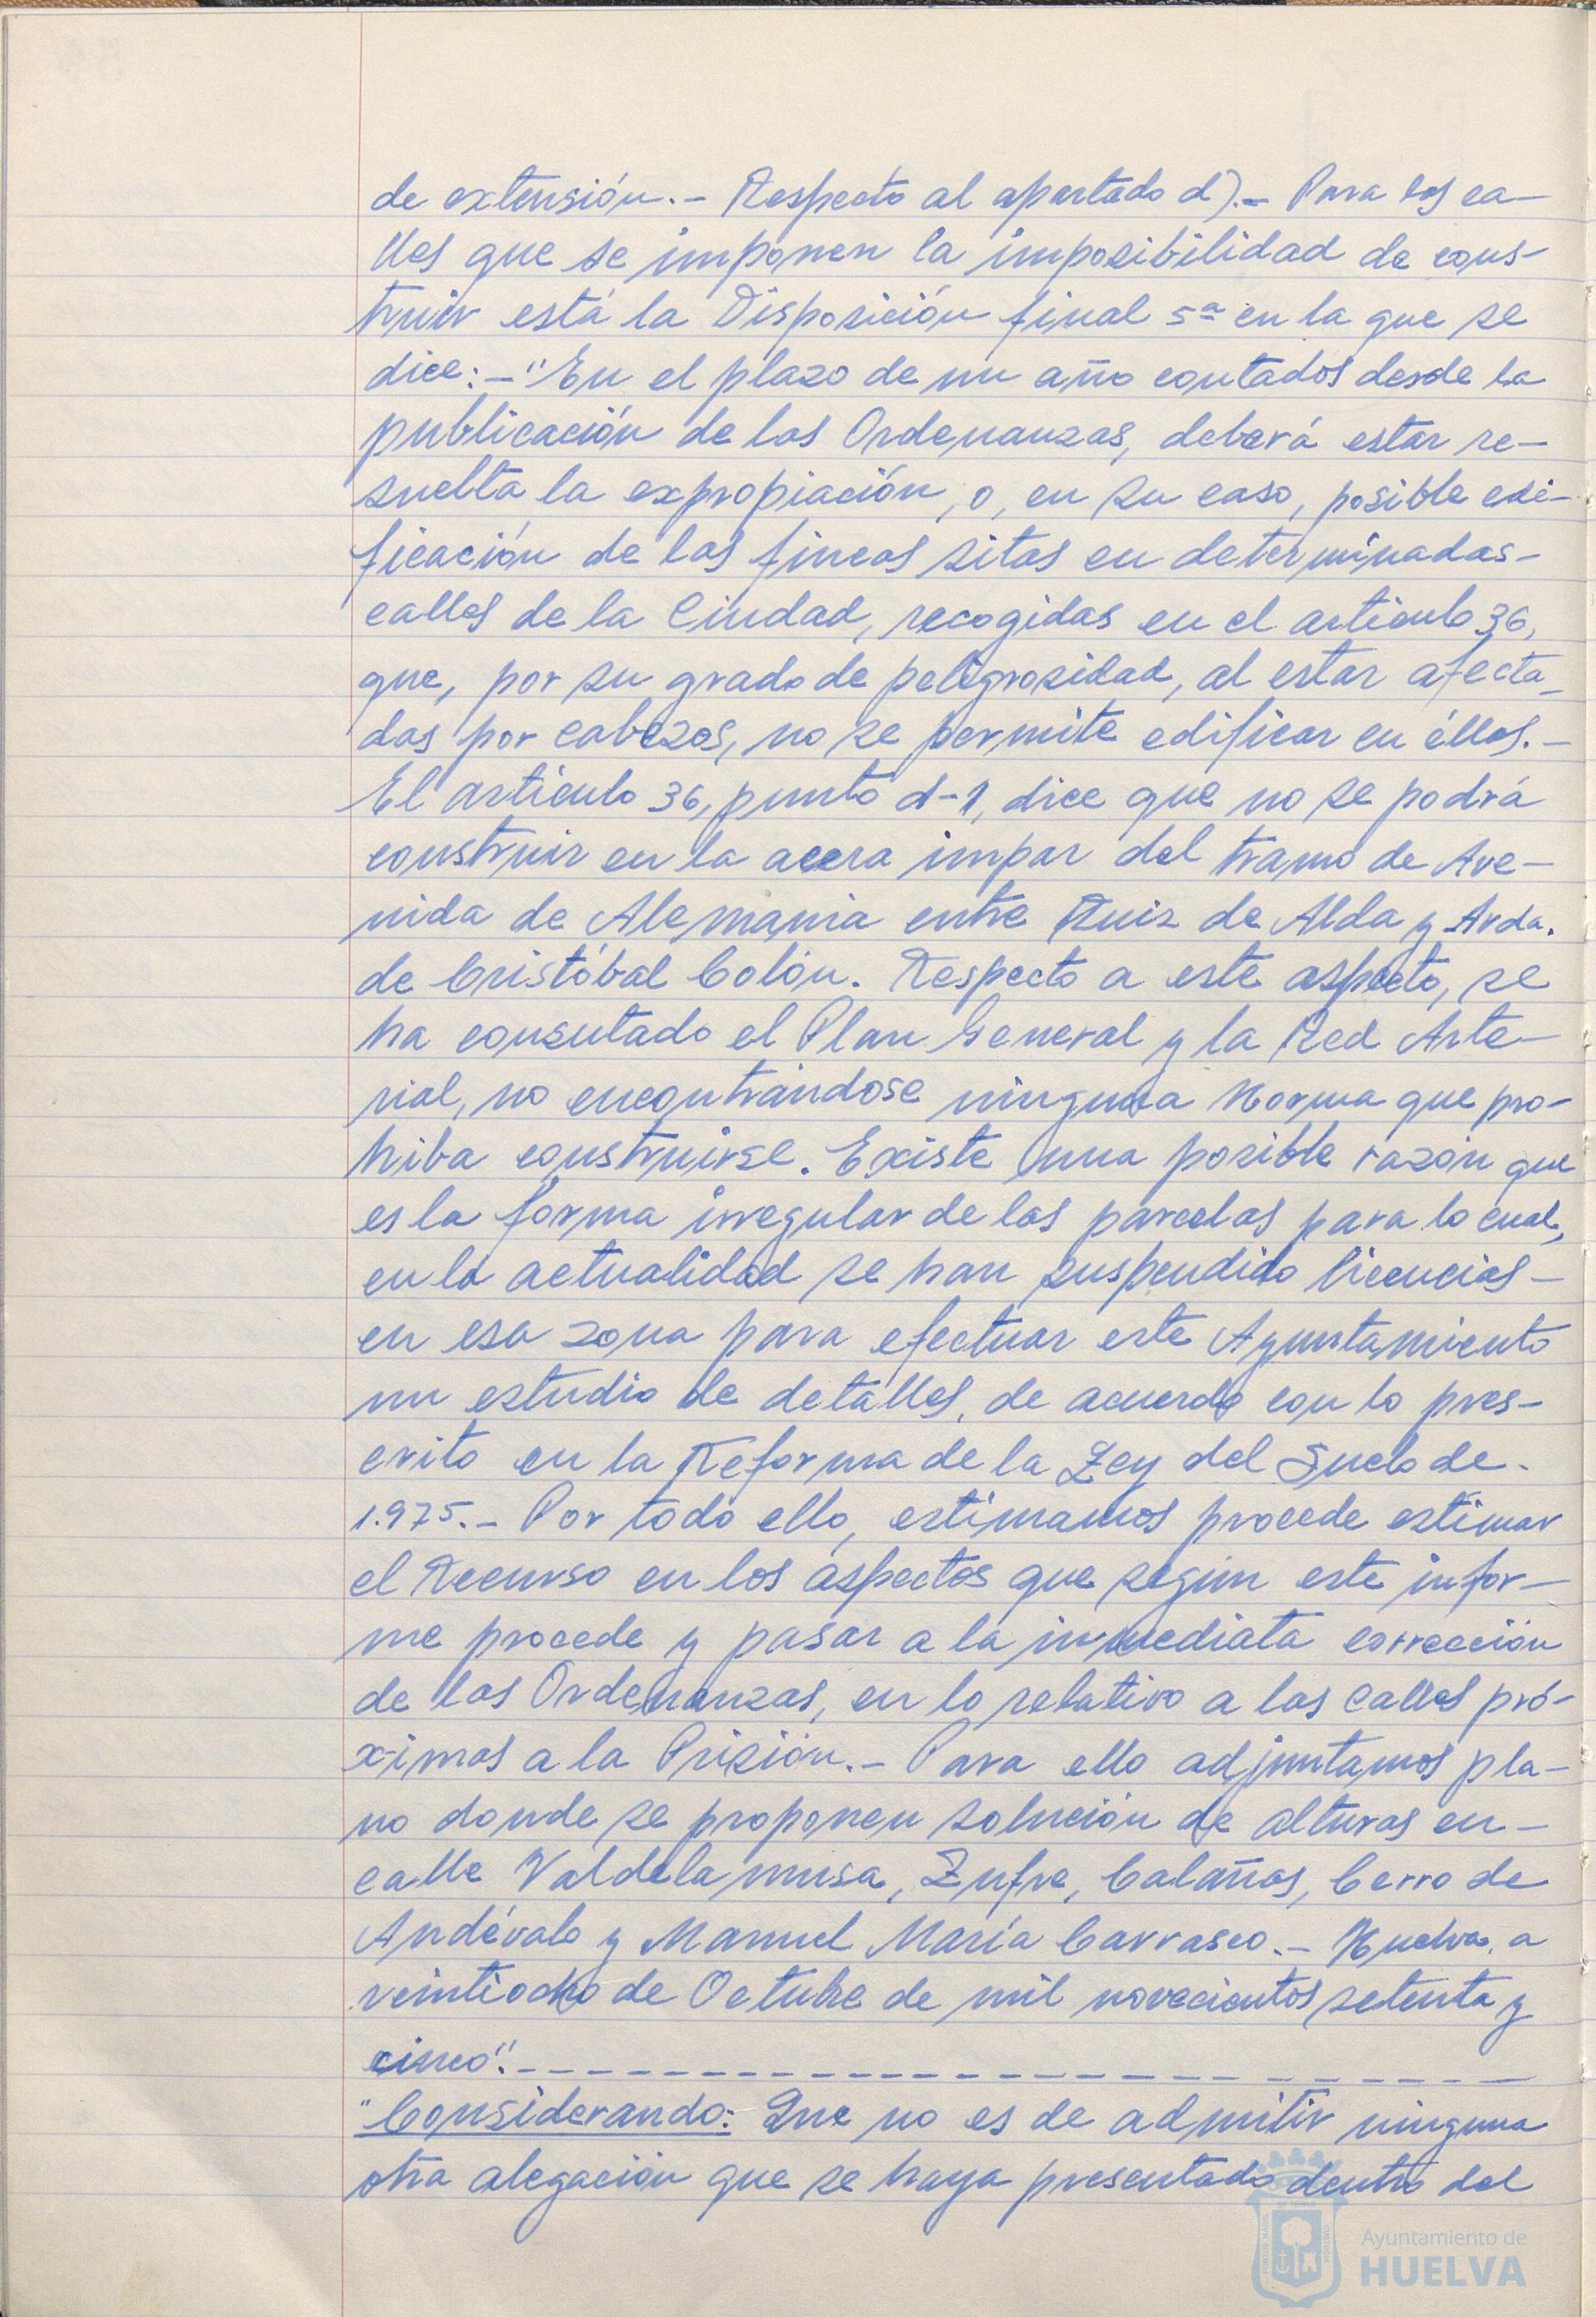 de extensión.- Respecto al apartado d).- Para las ca-
lles que se imponen la imposibilidad de cons-
truir está la Disposición final 5ª en la que se
dice:-"En el plazo de un año contados desde la
publicación de las Ordenanzas, deberá estar re-
suelta la expropiación, o, en su caso, posible edi-
ficación de las fincas sitas en determinadas-
calles de la Ciudad, recogidas en el artículo 36,
que, por su grado de peligrosidad, al estar afecta-
das por cabezos, no se permite edificar en éllas.-
El artículo 36, punto d-1, dice que no se podrá
construir en la acera impar del tramo de Ave-
nida de Alemania entre Ruiz de Alda y Avda.
de Cristóbal Colón. Respecto a este aspecto, se
ha consutado el Plan General y la Red Arte-
rial, no encontrándose ninguna Norma que pro-
hiba construirse. Existe una posible razón que
es la forma irregular de las parcelas para lo cual,
en la actualidad se han suspendido licencias-
en esa zona para efectuar este Ayuntamiento
un estudio de detalles, de acuerdo con lo pres-
crito en la Reforma de la Ley del Suelo de-
1.975.- Por todo ello, estimamos procede estimar
el Recurso en los aspectos que según este infor-
me procede y pasar a la inmediata corrección
de las Ordenanzas, en lo relativo a las calles pró-
ximas a la Prisión.- Para ello adjuntamos pla-
no donde se proponen solución de alturas en-
calle Valdelamusa, Zufre, Calañas, Cerro de
Andévalo y Manuel María Carrasco.- Huelva, a
veintiocho de Octubre de mil novecientos setenta y
cinco".- - - - - - - - - - - - - - - - - - - - - - -
"Considerando: Que no es de admitir ninguna
otra alegación que se haya presentado dentro del
Ayuntamiento de
HUELVA